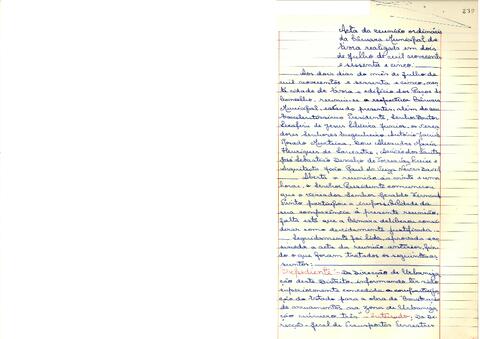 239
Acta da reunião ordinária
da Câmara Municipal de
Évora realizada em dois
de Julho de mil novecentos
e sessenta e cinco.
Aos dois dias do mês de Julho de
mil novecentos e sessenta e cinco, nes
ta cidade de Évora e edifício dos Paços do
Concelho, reuniu-se a respectiva Câmara
Municipal, estando presentes, além do seu
Excelentíssimo Presidente, Senhor Doutor
Serafim de Jesus Silveira Júnior, os verea
dores Senhores Engenheiro António Jacinto
Dom Alexandre Maria
Henriques de
José Sebastião
Arquitecto João Paul da
Aberta a reunião às vinte e uma
horas, o Senhor Presidente comunicou
que o vereador Senhor Geraldo Fernando
Pinto participou a impossibilidade da
sua comparência à presente reunião,
falta esta que a Câmara deliberou consi
derar como devidamente justificada.
Seguidamente foi lida, aprovada e as
sinada a acta da reunião anterior, fin
do o que foram tratados os seguintes as
suntos:
"Expediente": Da Direcção de Urbaniza
ção deste Distrito, informando ter sido
superiormente concedida a comparticipa
ção do Estado para a obra de "Construção
de arruamentos na zona de Urbaniza
ção número três" Da Di
recção-Geral de Transportes Terrestres